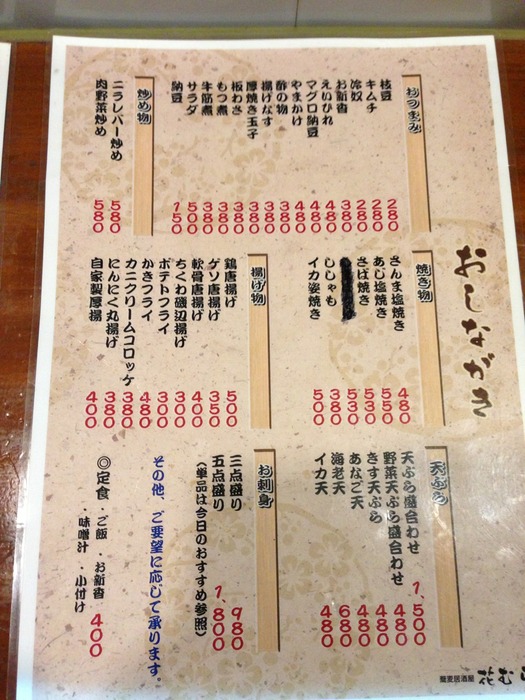 おしながき
おつまみ
枝豆 280
キムチ 280
冷奴 280
お新香 380
えいひれ 480
マグロ納豆 480
やまかけ 480
酢の物 380
揚げなす 380
厚焼き玉子 380
板わさ 380
もつ煮 380
牛筋煮 380
サラダ 500
納豆 150
炒め物
ニラレバー炒め 580
肉野菜炒め 580
焼き物
さんま塩焼き 480
あじ塩焼き 550
さば焼き 530
530
ししゃも 380
イカ姿焼き 500
揚げ物
鶏唐揚げ 500
ゲソ唐揚げ 350
軟骨唐揚げ 400
ちくわ磯辺揚げ 300
ポテトフライ 300
かきフライ 480
カニクリームコロッケ 380
にんにく丸揚げ 380
自家製厚揚 400
天ぷら
天ぷら盛合わせ 1,500
野菜天ぷら盛合わせ 480
きす天ぷら 480
あなご天 480
海老天 680
イカ天 480
お刺身
三点盛り 980
五点盛り 1,800
(単品は今日のおすすめ参照)
その他、ご要望に応じて承ります。
◎定食・ご飯・お新香 400
・味噌汁・小付け
蕎麦居酒屋 花む